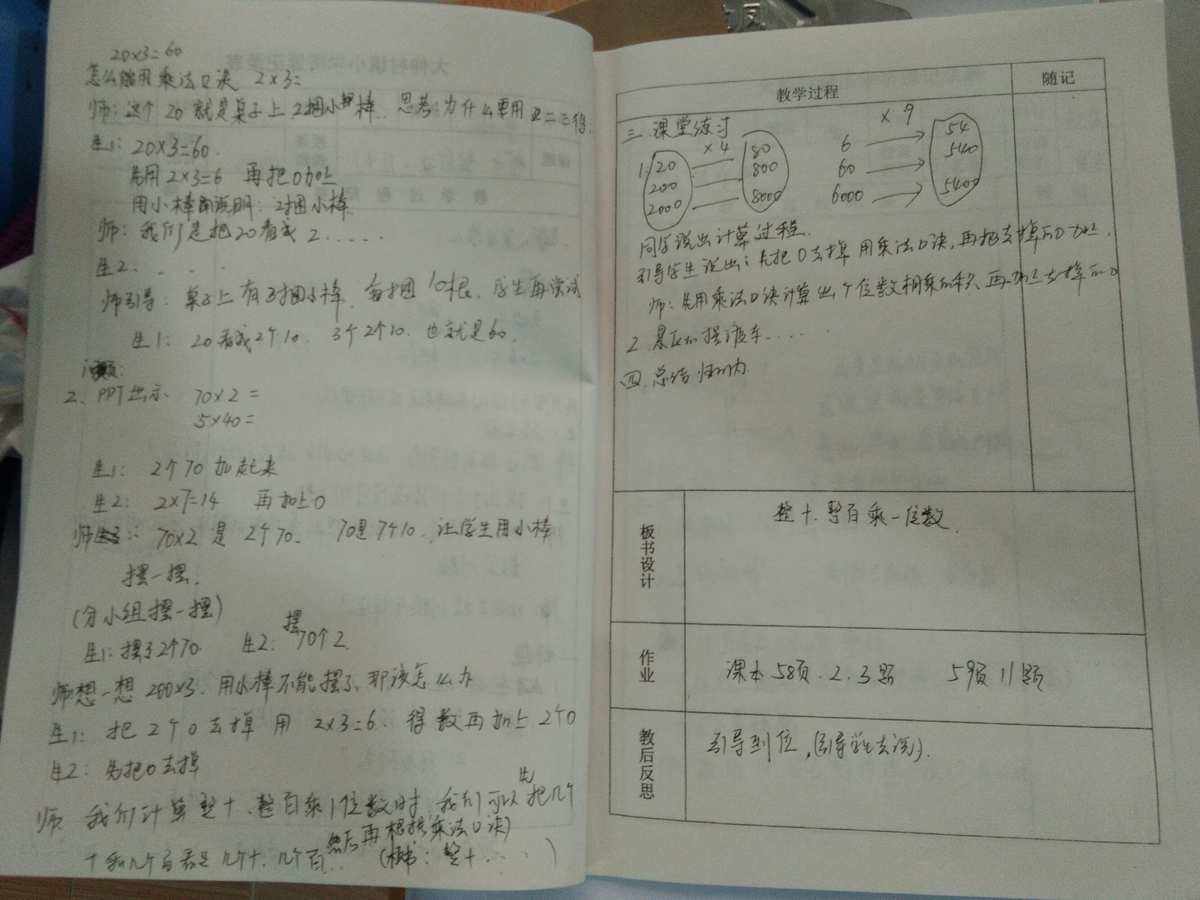 20×3=60
怎么能用乘法口诀 2×3=
师:这个20就是桌子上2捆小棒. 思考:为什么要用二三得
生1: 20×3=60.
先用2×3=6 再把0加上
用小棒说明:2捆小棒
师:我们是把20看成2......
生2. . . .
师引导:桌子上有3捆小棒, 每捆10根. 学生再尝试
生1: 20看成2个10. 3个2个10. 也就是60.
2、PPT出示 70×2=
5×40=
生1: 2个70加起来
生2: 2×7=14 再加上0
师: 70×2是2个70. 70是7个10. 让学生用小棒
摆一摆.
(分小组摆一摆)
生1:摆了2个70. 生2:摆70个2.
师想一想 200×3. 用小棒不能摆了,那该怎么办
生1: 把2个0去掉用2×3=6. 得数再加上2个0
生2: 先把0去掉
师 我们计算整十、整百乘1位数时,我们可以先把几个
十和几个百看是几个十.几个百. 然后再根据乘法口诀
(板书:整十....)
教学过程
随记
三.课堂练习
1. 20 200 2000 ×4 80 800 8000
6 60 6000 ×9 54 540 5400
同学说出计算过程.
引导学生说出:先把0去掉用乘法口诀,再把去掉的0加上.
师:先用乘法口诀计算出个位数相乘的积,再加上去掉的0
2.
四.总结归纳
板书设计
整十.整百乘一位数.
作业
课本58页.2.3题 59页11题
教后反思
引导到位,(引导学生去说).